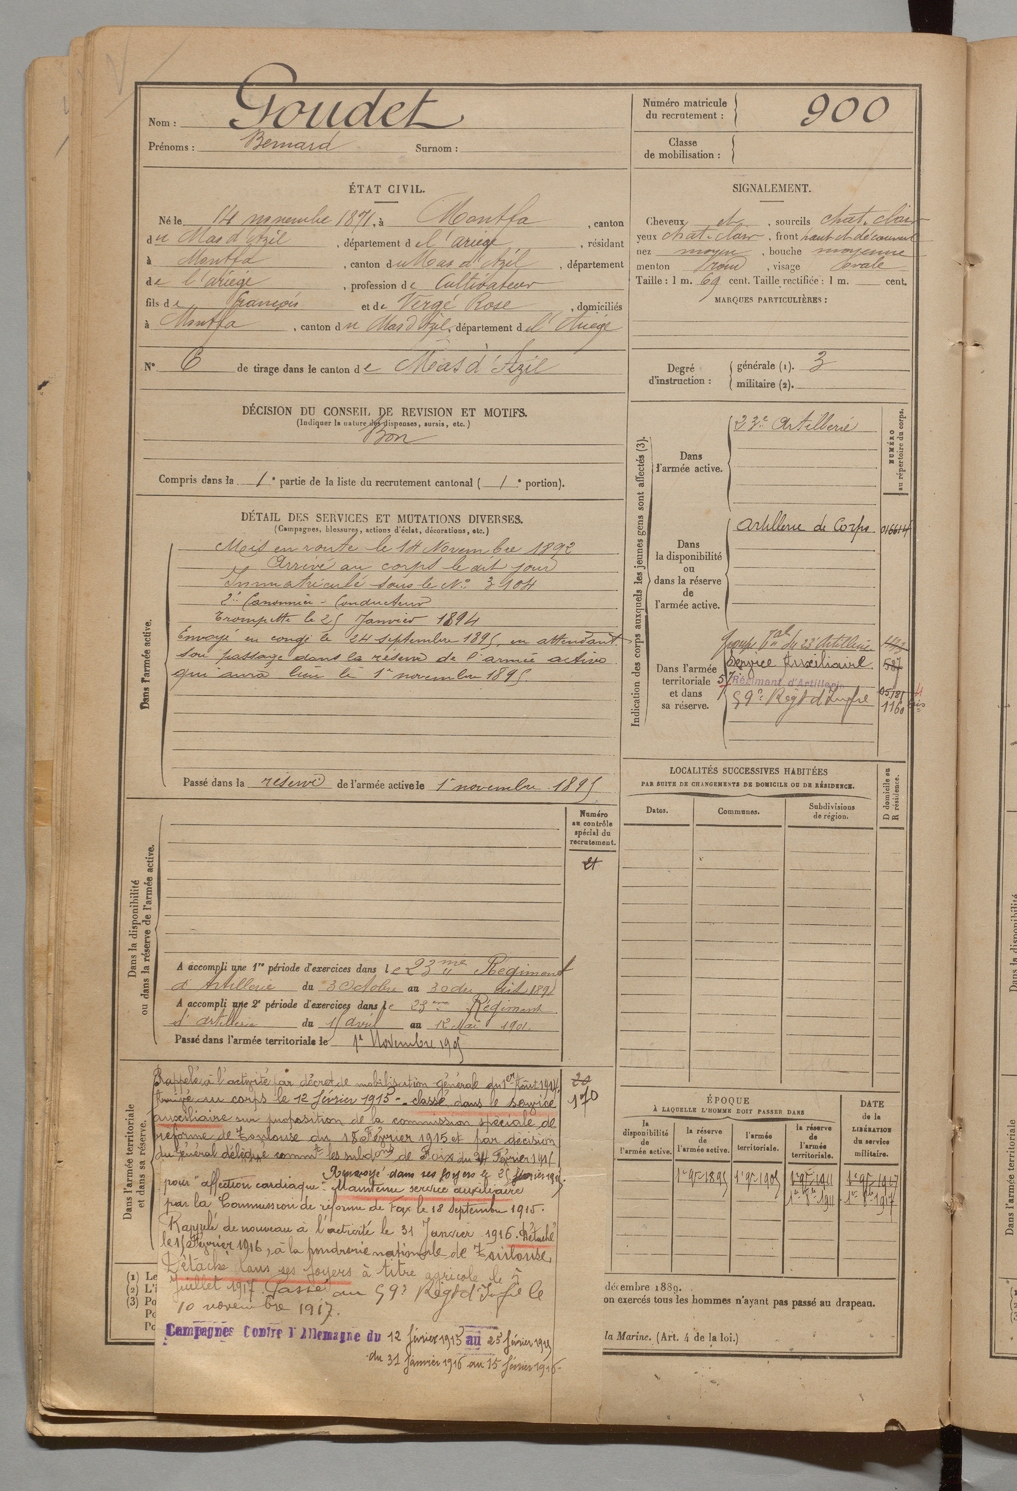 Nom : Goudet
Prénoms : Bernard Surnom :
Numéro matricule du recrutement : 900
Classe de mobilisation :
ÉTAT CIVIL.
Né le 14 novembre 1871, à Montfa, canton
du Mas d'Azil, département de l'ariège, résidant
à Montfa, canton du Mas d'Azil, département
de l'ariège, profession de Cultivateur
fils de françois et de Vergé Rose, domiciliés
à Montfa, canton du Mas d'Azil, département de l'Ariège
N° 6 de tirage dans le canton de Mas d'Azil
SIGNALEMENT.
Cheveux et, sourcils chat. clair
yeux chat. clair, front haut et découvert
nez moyen, bouche moyenne
menton rond, visage Ovale
Taille : 1 m. 69 cent. Taille rectifiée : 1 m. cent.
MARQUES PARTICULIÈRES :
Degré d'instruction : générale (1). 3
militaire (2).
DÉCISION DU CONSEIL DE REVISION ET MOTIFS.
(Indiquer la nature des dispenses, sursis, etc.)
Bon
Compris dans la 1e partie de la liste du recrutement cantonal (1e portion).
DÉTAIL DES SERVICES ET MUTATIONS DIVERSES.
(Campagnes, blessures, actions d'éclat, décorations, etc.)
Dans l'armée active.
Mis en route le 14 Novembre 1892
Arrivé au corps le dit jour
Immatriculé sous le N° 3104
2e Canonnier-Conducteur
Trompette le 25 Janvier 1894
Envoyé en congé le 24 septembre 1895, en attendant
son passage dans la réserve de l'armée active
qui aura lieu le 1er novembre 1895
Passé dans la réserve de l'armée active le 1er novembre 1895
Indication des corps auxquels les jeunes gens sont affectés (3).
NUMÉRO au répertoire du corps.
Dans l'armée active.
23e Artillerie
Dans la disponibilité ou dans la réserve de l'armée active.
Artillerie de Corps
Dans l'armée territoriale et dans sa réserve.
Groupe du 23e Artillerie
Service Auxiliaire 587
57 Régiment d'Artillerie
59e Régt d'Infie 1160
LOCALITÉS SUCCESSIVES HABITÉES
PAR SUITE DE CHANGEMENTS DE DOMICILE OU DE RÉSIDENCE.
Dates. Communes. Subdivisions de région. D domicile ou R résidence.
Dans la disponibilité ou dans la réserve de l'armée active.
Numéro au contrôle spécial du recrutement.
A accompli une 1re période d'exercices dans le 23me Régiment
d'Artillerie du 3 Octobre au 30 du
A accompli une 2e période d'exercices dans le 23me Régiment
d'artillerie du 15 avril au 12 Mai 1901
Passé dans l'armée territoriale le 1er Novembre 1905
Dans l'armée territoriale et dans sa réserve.
Rappelé à l'activité par décret de mobilisation générale du 1er Août 1914
Arrivé au corps le 12 février 1915 - classé dans le service
auxiliaire sur proposition de la commission spéciale de
réforme de Toulouse du 18 Février 1915 et par décision
du général délégué commt les subdons de Foix du 24 Février 1915
pour "affection cardiaque". Renvoyé dans ses foyers le 25 février 1915
Maintenu service auxiliaire
par la Commission de réforme de Foix le 18 Septembre 1915.
Rappelé de nouveau à l'activité le 31 Janvier 1916. Détaché
le 15 Février 1916, à la poudrerie nationale de Toulouse
Détaché dans ses foyers à titre agricole le
Juillet 1917. Passé au 59e Régt d'Infie le
10 novembre 1917.
Campagnes Contre l'Allemagne du 12 février 1915 au 25 février 1915
du 31 Janvier 1916 au 15 février 1916
170
ÉPOQUE
À LAQUELLE L'HOMME DOIT PASSER DANS
la disponibilité de l'armée active.
la réserve de l'armée active.
l'armée territoriale.
la réserve de l'armée territoriale.
DATE de la LIBÉRATION du service militaire.
1er 9bre 1895 1er 9bre 1905 1er 9bre 1911 1er 9bre 1917
(1) Le
(2) L'i
(3) Po
Po
décembre 1889.
on exercés tous les hommes n'ayant pas passé au drapeau.
la Marine. (Art. 4 de la loi.)